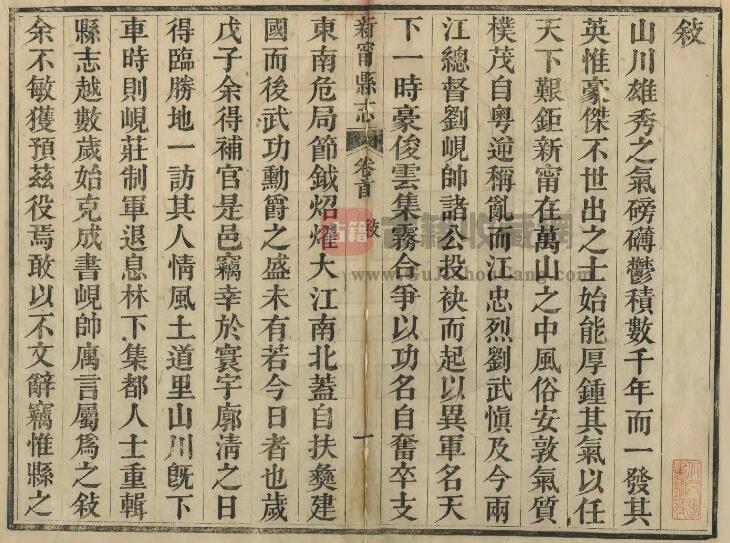 敍
山川雄秀之氣磅礴鬱積數千年而一發其
英惟豪傑不世出之士始能厚鍾其氣以任
天下艱鉅新甯在萬山之中風俗安敦氣質
樸茂自粵逆稱亂而江忠烈劉武愼及今兩
江總督劉峴帥諸公投袂而起以異軍名天
下一時豪俊雲集霧合爭以功名自奮卒支
新甯縣志
卷首
敍
一
東南危局節鉞炤燿大江南北蓋自扶彝建
國而後武功勳爵之盛未有若今日者也歲
戊子余得補官是邑竊幸於寰宇廓清之日
得臨勝地一訪其人情風土道里山川旣下
車時則峴莊制軍退息林下集都人士重輯
縣志越數歲始克成書峴帥寓言屬爲之敍
余不敏獲預茲役焉敢以不文辭竊惟縣之
古籍
古籍收藏網
www.GuJiShouCang.com